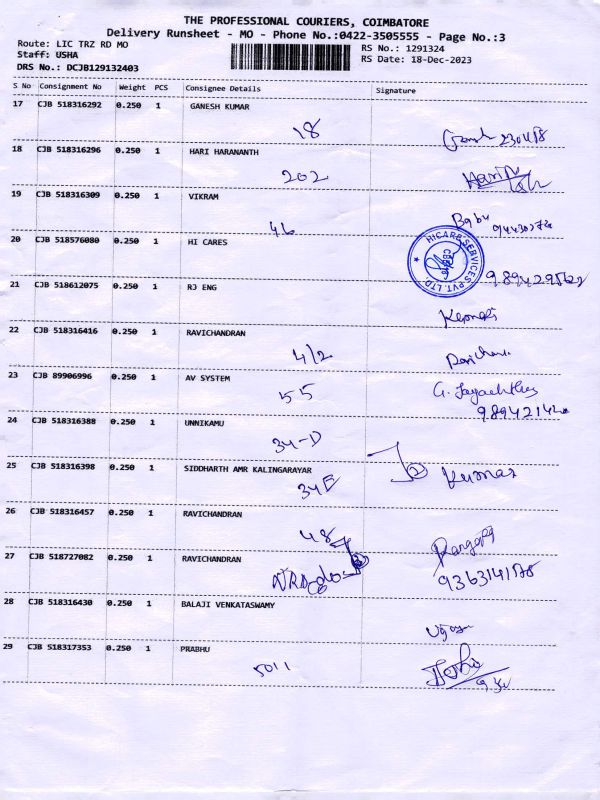 THE PROFESSIONAL COURIERS, COIMBATORE
Delivery Runsheet - MO - Phone No.:0422-3505555 - Page No.:3
Route: LIC TRZ RD MO RS No.: 1291324
Staff: USHA RS Date: 18-Dec-2023
DRS No.: DCJB129132403
S No Consignment No Weight PCS Consignee Details Signature
17 CJB 518316292 0.250 1 GANESH KUMAR
18
18 CJB 518316296 0.250 1 HARI HARANANTH
202
19 CJB 518316309 0.250 1 VIKRAM
46 Babu
20 CJB 518576080 0.250 1 HI CARES
HICARE SERVICES PVT. LTD
21 CJB 518612075 0.250 1 RJ ENG
22 CJB 518316416 0.250 1 RAVICHANDRAN
4/2
23 CJB 89906996 0.250 1 AV SYSTEM
55
24 CJB 518316388 0.250 1 UNNIKAMU
34-D
25 CJB 518316398 0.250 1 SIDDHARTH AMR KALINGARAYAR
34E Kumar
26 CJB 518316457 0.250 1 RAVICHANDRAN
48
27 CJB 518727082 0.250 1 RAVICHANDRAN
28 CJB 518316430 0.250 1 BALAJI VENKATASWAMY
29 CJB 518317353 0.250 1 PRABHU
5011